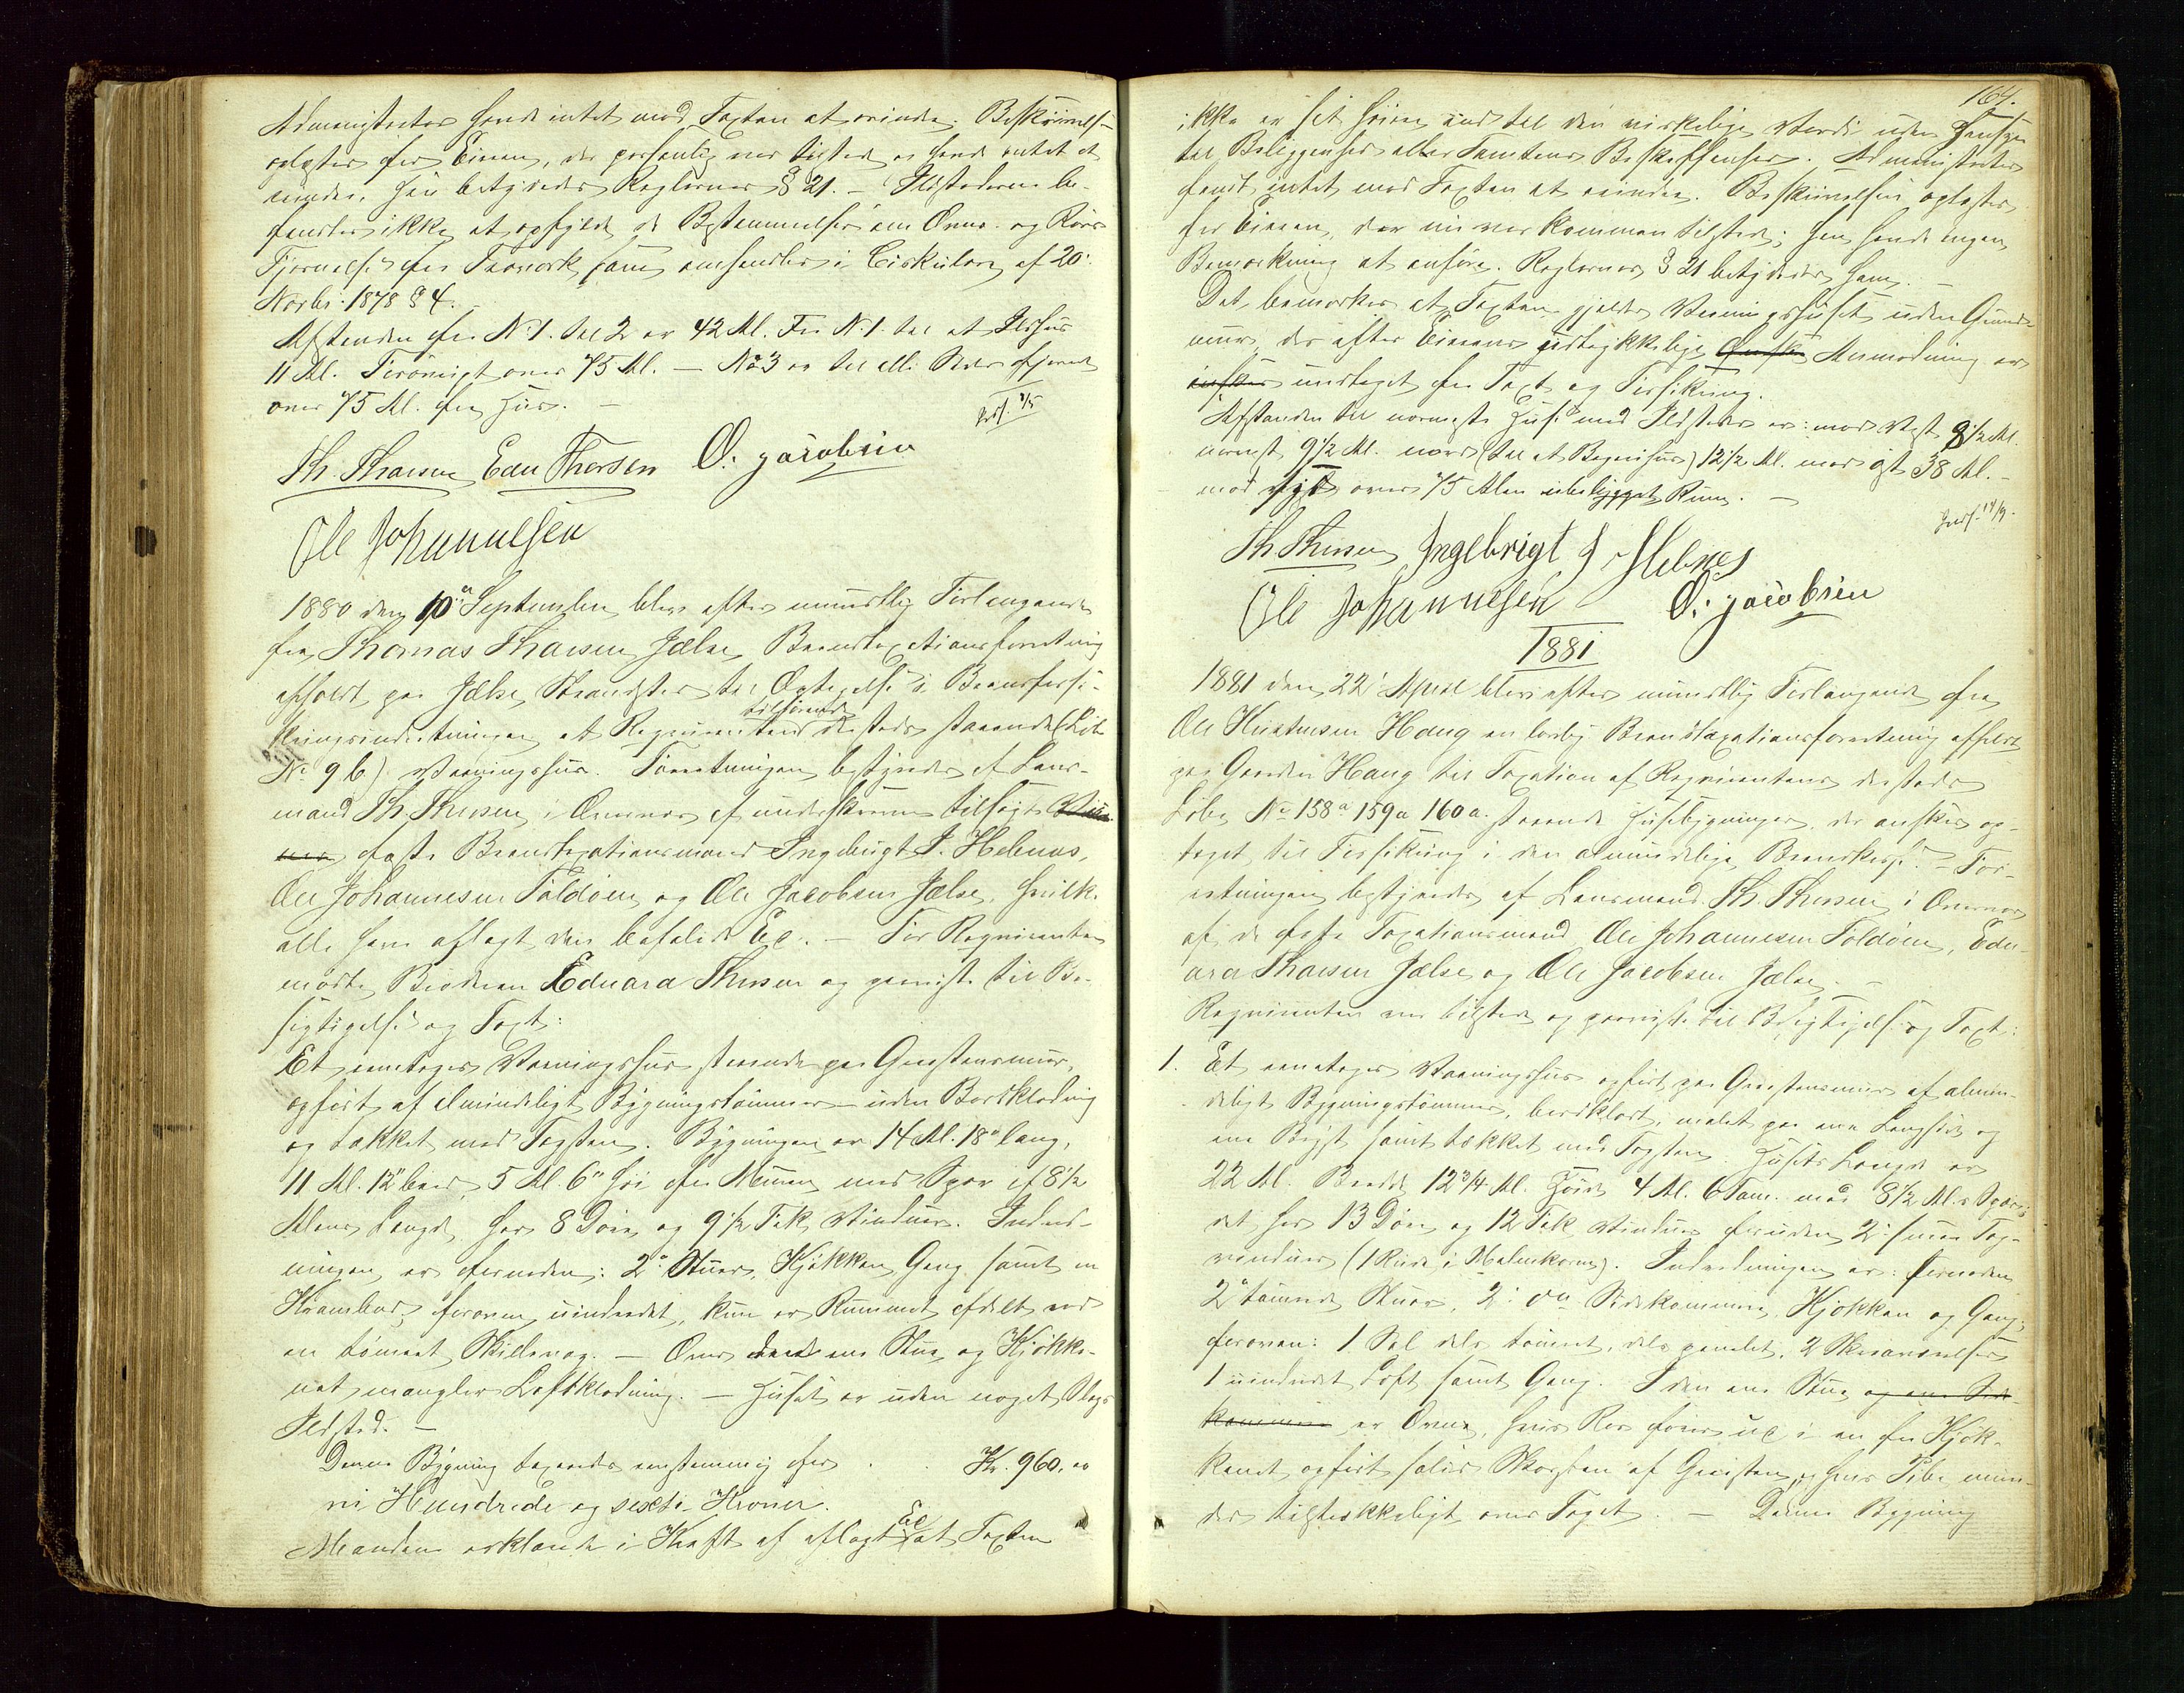 Administrator havde intet mod Taxten at erindre. Beskrivels-
oplæstes for Eieren, der personlig var tilstede og havde intet at
erindre. Han betydedes Reglernes § 21. – Ildstederne be-
fandtes ikke at opfylde de Bestemmelser om Ovne- og Rørs
Fjernelse fra Træværk, som omhandles i Cirkulære af 20'
Novbr. 1878 § 4. –
Afstanden fra No 1. til 2 er 42 Al. Fra No 1. til et Ildhus
11 Al. Forøvrigt over 75 Al. – No 3 er til alle Sider fjernet
over 75 Al. fra Hus. –
Th. Thorsen Edu Thorsen O. jacobsen
Ole Johannesen
1880 den 10de September blev efter mundtlig Forlangende
fra Thomas Thorsen Jælse Brandtaxationsforretning
afholdt paa Jælse Strandsted til Optagelse i Brandforsi-
tilhørende
kringsindretningen et Requirenten dersteds staaende (Løbe
No 9 b) Vaaningshus. Forretningen bestyredes af Lens-
mand Th. Thorsen i Overvær af underskrevne tilsagte
faste Brandtaxationsmænd Ingebrigt I. Hebnes,
Ole Johannesen Foldøen og Ole Jacobsen Jælse, hvilke
alle have aflagt den befalede Ed. – For Requirenten
mødte Broderen Eduard Thorsen og paaviste til Be-
sigtigelse og Taxt:
Et eenetages Vaaningshus staaende paa Graastensmuur,
opført af almindeligt Bygningstømmer – uden Bordklædning
og tækket med Tagsten. Bygningen er 14 Al. 18" lang,
11 Al. 12" bred, 5 Al. 6" høi fra Muren med Spær af 8½
Alens Længde, har 8 Døre og 9½ Fak Vinduer. Indred-
ningen er forneden: 2de Stuer, Kjøkken, Gang samt en
Krambod, foroven uindredet, kun er Rummet afdelt ved
en tømret Skillevæg. – Over den ene Stue og Kjøkke-
net mangler Loftklædning. – Huset er uden noget Slags
Ildsted. –
Denne Bygning taxeredes enstemmig for . . Kr. 960, er
ni Hundrede og sexti Kroner.
Ed
Mændene erklærede i Kraft af aflagt at Taxten
164.
ikke er sat høiere end til den virkelige Værdi uden Hensyn
til Beliggenhed eller Tomtens Beskaffenhed. Administrator
fandt intet mod Taxten at erindre. Beskrivelsen oplæstes
for Eieren, der nu var kommen tilstede; han havde ingen
Bemærkning at anføre. Reglernes § 21 betydedes ham. –
Det bemærkes at Taxten gjælder Vaaningshuset uden Grund-
mur, der efter Eierens udtrykkelige Ønske Anmodning er
ønskes undtaget fra Taxt og Forsikring.
Afstanden til nærmeste Huse med Ildsteder er: mod Vest 8½ Al.
nordvest 9½ Al. nord (til et Bageriehus) 12½ Al. mod øst 38 Al. –
mod syd over 75 Alen ubebygget Rum. –
Th Thorsen Ingebrigt J Hebnes
Ole Johannesen O. jacobsen
1881
1881 den 22' April blev efter mundtlig Forlangende fra
Ole Knutsen Haug en lovlig Brandtaxationsforretning afholdt
paa Gaarden Haug til Taxation af Requirentens dersteds
Løbe No 158a 159a 160a. staaende Husebygninger, der ønskes op-
taget til Forsikring i den almindelige Brandkasse. – For-
retningen bestyredes af Lensmand Th. Thorsen i Overvær
af de faste Taxationsmænd Ole Johannesen Foldøen, Edu-
ard Thorsen Jælse og Ole Jacobsen Jælse. –
Requirenten var tilstede og paaviste til Besigtigelse og Taxt:
1. Et eenetages Vaaningshus opført paa Graastensmuur af almin-
deligt Bygningstømmer, bordklædt, malet paa ene Langside og
ene Røst samt tækket med Tagsten. Husets Længde er
22 Al. Bredde 12¾ Al. Høide 4 Al. 6 Tom. med 8½ Al.s Spær;
det har 13 Døre og 12 Fak Vinduer foruden 2de smaa Tag-
vinduer (1 Rude i Malmkarm). Indredningen er: forneden
2de tømrede Stuer, 2de do Sidekammere, Kjøkken og Gang;
foroven: 1 Sal dels tømret, dels panelet, 2 Skraaværelser
1 uindredet Loft samt Gang. I den ene Stue og ene Side-
kammer er Ovne, hvis Rør føres ud i en fra Kjøk-
kenet opført solid Skorsten af Graasten, hvis Pibe mun-
der tilstrækkeligt over Taget. – Denne Bygning